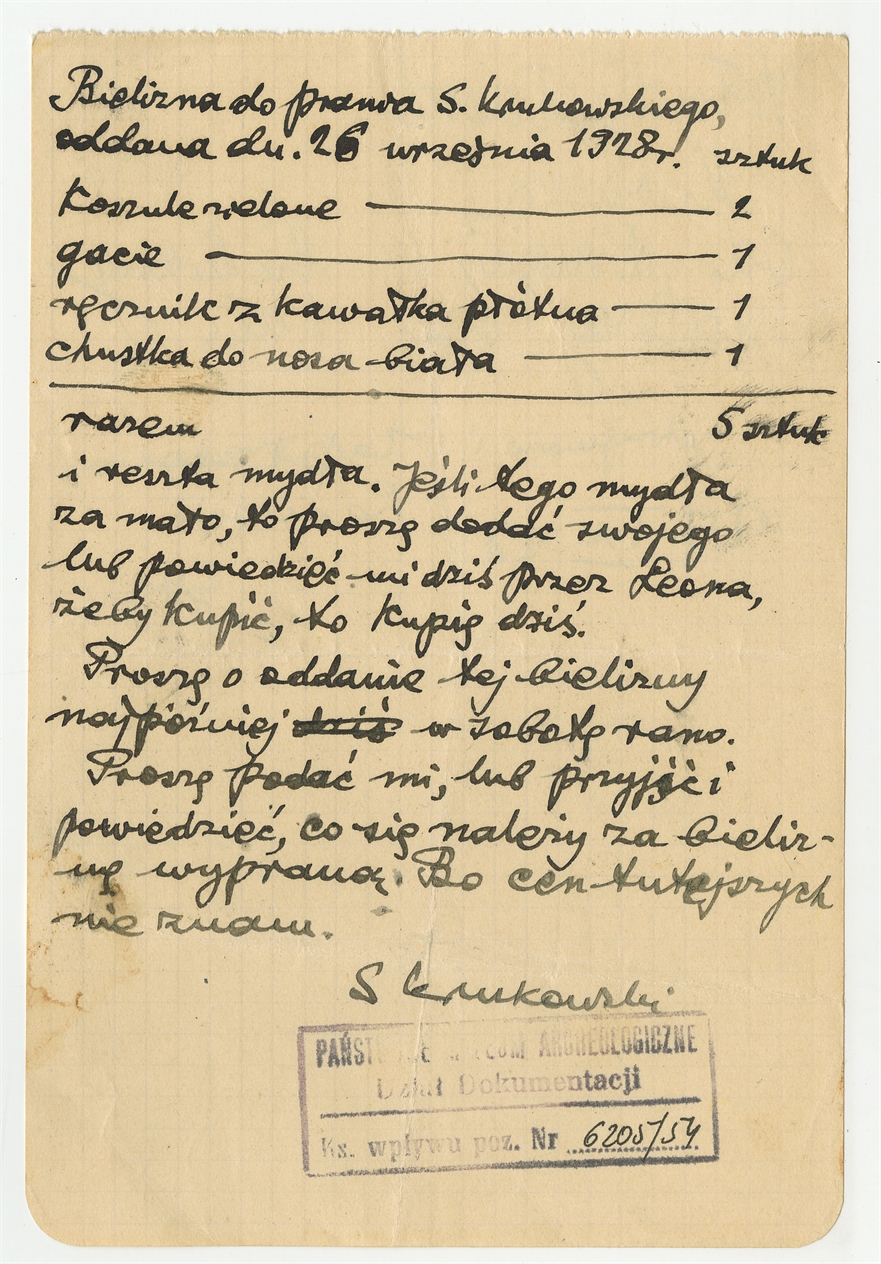 Bielizna do prania S. Krukowskiego,
oddana dn. 26 września 1928r. sztuk
Koszule zielone — 2
gacie — 1
ręcznik z kawałka płótna — 1
chustka do nosa biała — 1
razem 5 sztuk
i reszta mydła. Jeśli tego mydła
za mało, to proszę dodać swojego
lub powiedzieć mi dziś przez Leona,
żeby kupić, to kupię dziś.
Proszę o oddanie tej bielizny
najpóźniej dziś w sobotę rano.
Proszę podać mi, lub przyjść i
powiedzieć, co się należy za bieliz-
nę wypraną. Bo cen tutejszych
nie znam.
S Krukowski
PAŃSTWOWE MUZEUM ARCHEOLOGICZNE
Dział Dokumentacji
Ks. wpływu poz. Nr 6205/54